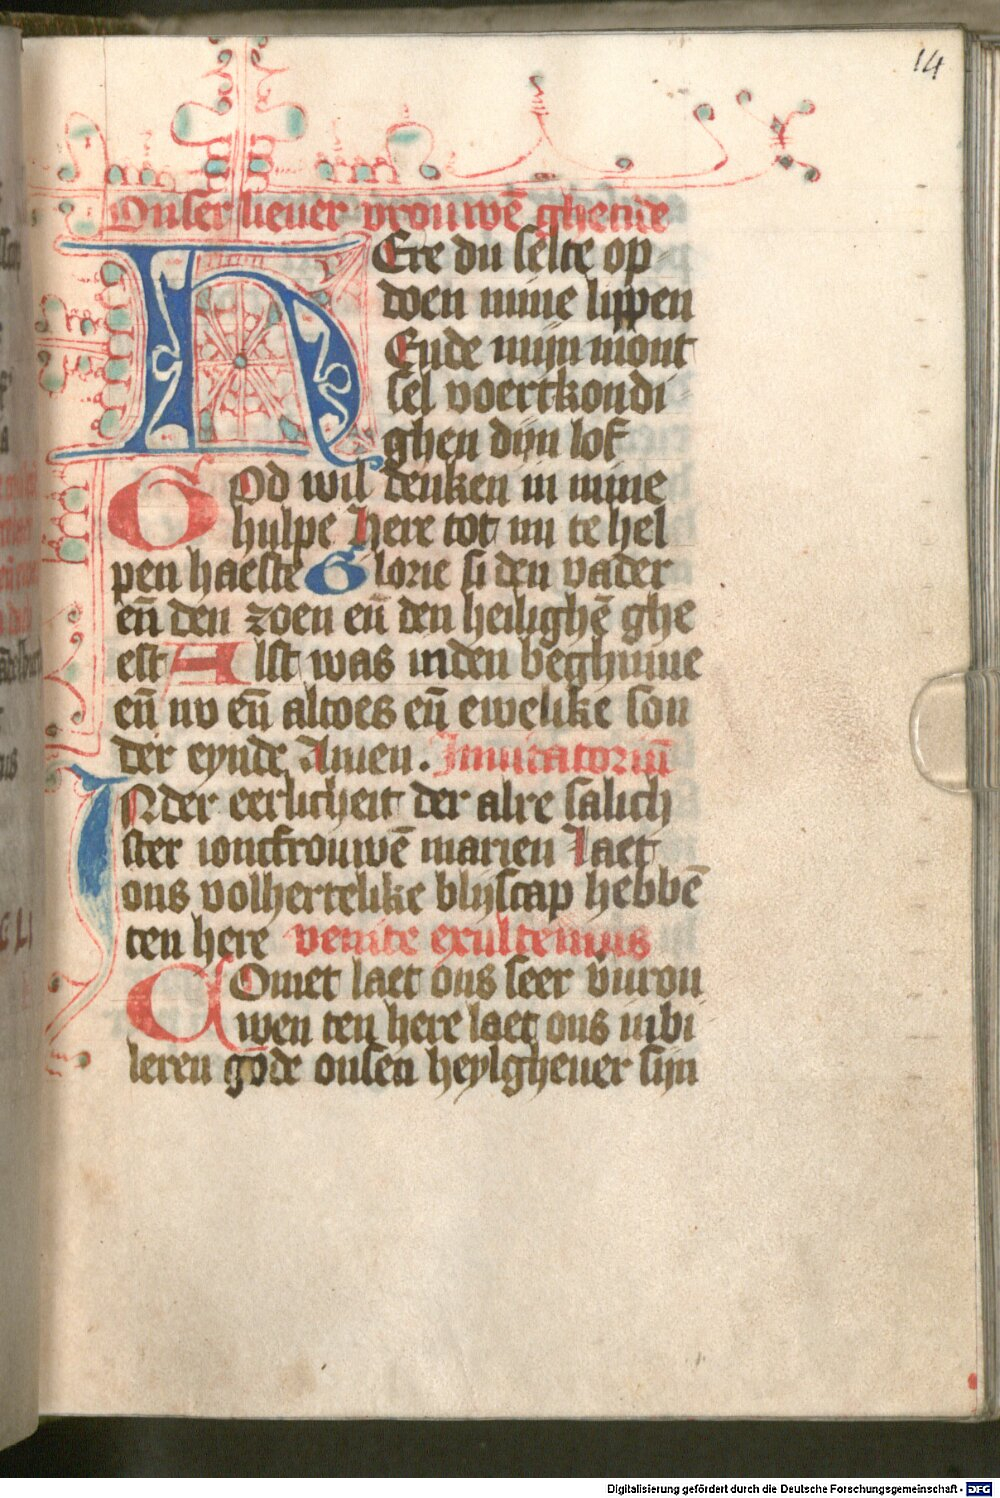 14
Onser lieuer vrouwē ghetide
HEre du selte op
doen mine lippen
Ende mijn mont
sel voertkondi
ghen dijn lof
GOd wil denken in mine
hulpe here tot mi te hel
pen haeste Glorie si den vader
eñ den zoen eñ den heilighē ghe
est Alst was inden beghinne
eñ nv eñ altoes eñ ewelike son
der eynde Amen. Inuitatoriū
INder eerlicheit der alre salich
ster ioncfrouwē marien Laet
ons volhertelike blijscap hebbē
ten here venite exultemus
COmet laet ons seer vurou
wen ten here laet ons iubi
leren gode onsen heylgheuer sijn
Digitalisierung gefördert durch die Deutsche Forschungsgemeinschaft - DFG